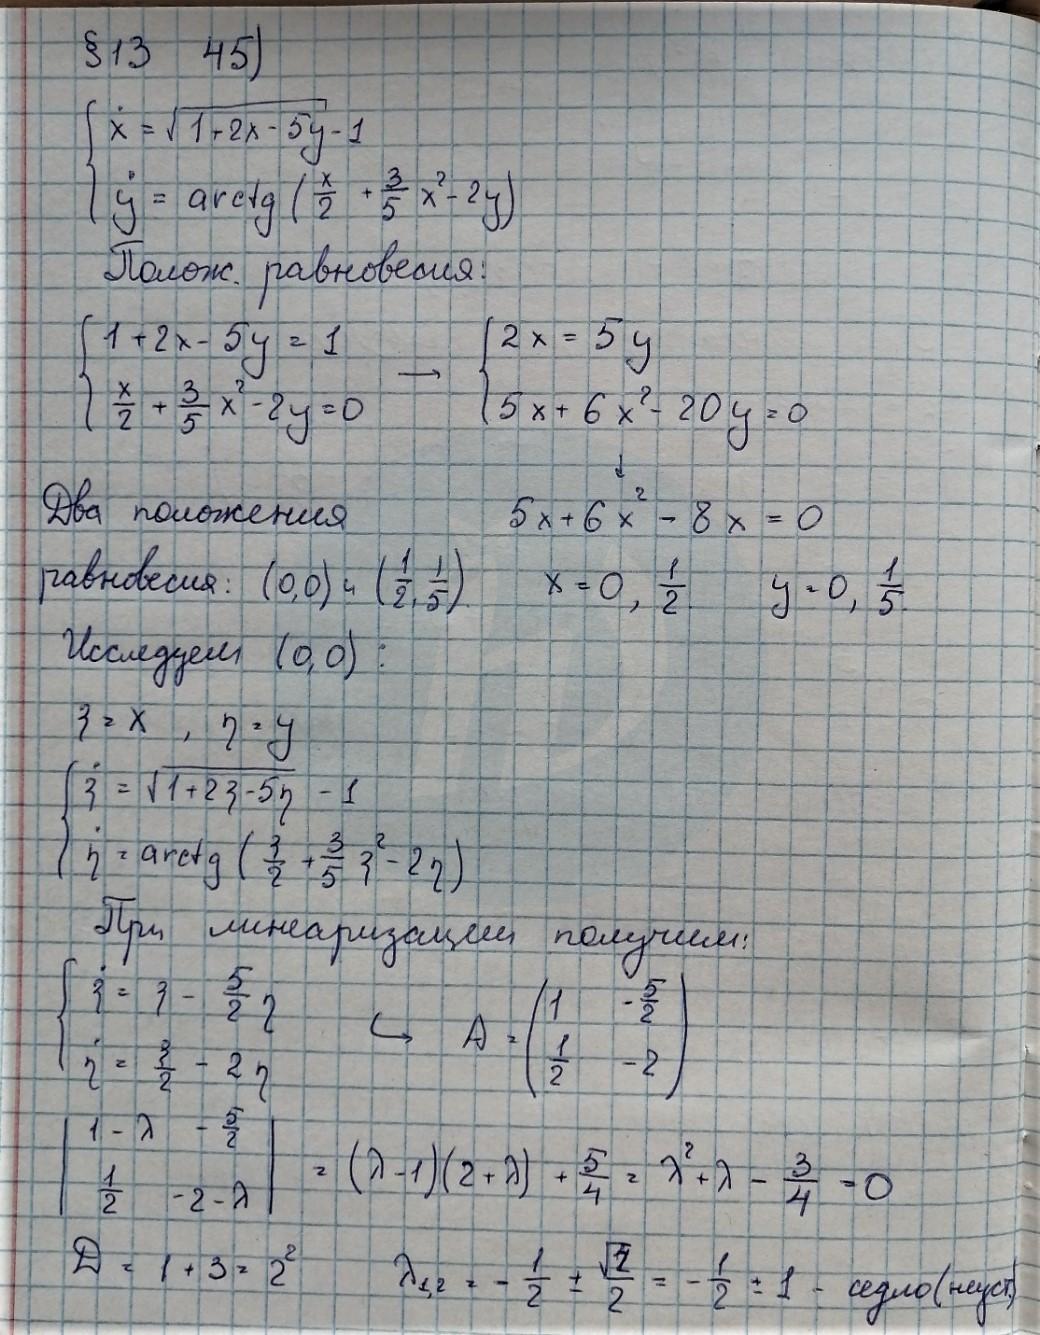 §13 45)
{ ẋ = √(1+2x-5y) - 1
{ ẏ = arctg (x/2 + 3/5 x² - 2y)
Полож. равновесия:
{ 1+2x-5y = 1 → { 2x = 5y
{ x/2 + 3/5 x² - 2y = 0 { 5x + 6x² - 20y = 0
↓
Два положения 5x + 6x² - 8x = 0
равновесия: (0,0) и (1/2, 1/5) x = 0, 1/2. y = 0, 1/5.
Исследуем (0,0):
ξ = x, η = y
{ ξ̇ = √(1+2ξ-5η) - 1
{ η̇ = arctg (ξ/2 + 3/5 ξ² - 2η)
При линеаризации получим:
{ ξ̇ = ξ - 5/2 η
{ η̇ = ξ/2 - 2η ↪ A = (1 -5/2; 1/2 -2)
|1-λ -5/2; 1/2 -2-λ| = (λ-1)(2+λ) + 5/4 = λ² + λ - 3/4 = 0
D = 1+3 = 2² λ₁,₂ = -1/2 ± 2/2 = -1/2 ± 1 - седло (неуст)